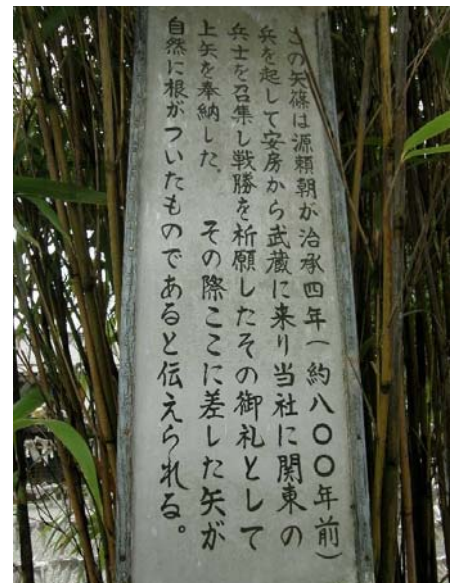 この矢篠は源頼朝が治承四年(約八〇〇年前)
兵を起して安房から武蔵に来り当社に関東の
兵士を召集し戦勝を祈願したその御礼として
上矢を奉納した。 その際ここに差した矢が
自然に根がついたものであると伝えられる。